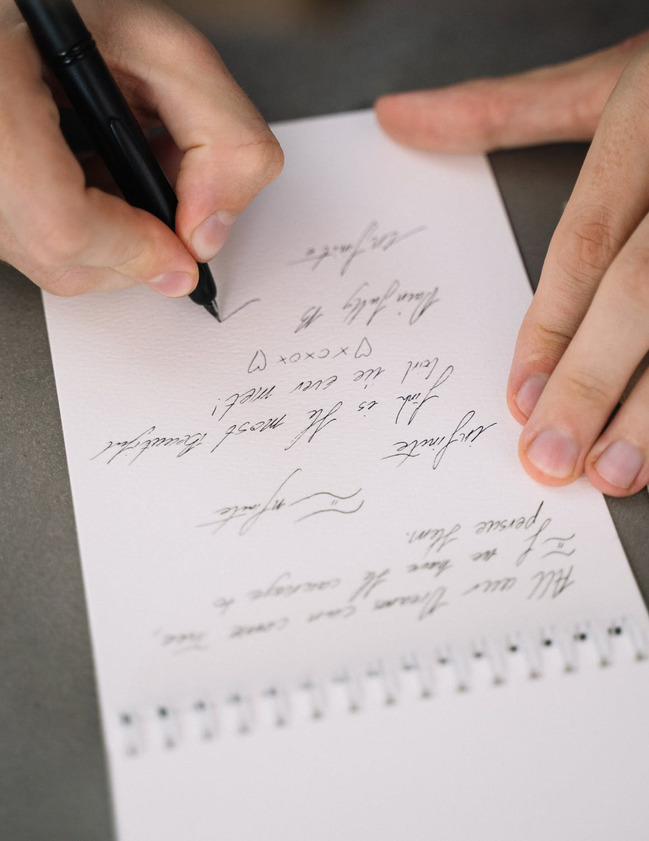 All our Dream can come True,
If we have the courage to
persue them.
infinite
infinite
is the most Beautiful
ever met!
♡ x o x o ♡
Painfully
infinite